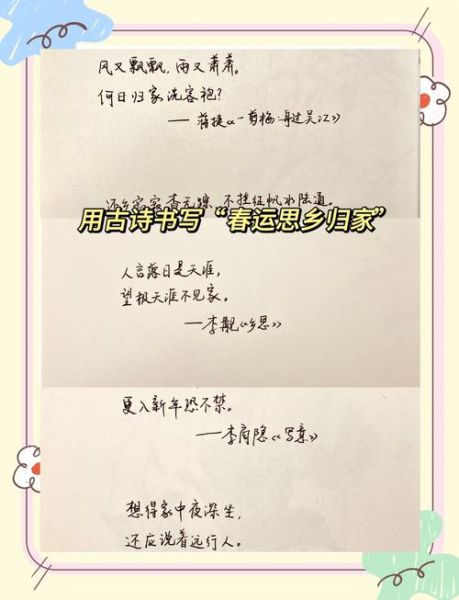 风又飘飘，雨又萧萧。
何日归家洗客袍？
——蒋捷《一剪梅·舟过吴江》
还乡 杳无踪，不挂征帆水陆通。
用古诗书写“春运思乡归家”
人言落日是天涯，
望极天涯不见家。
——李觏《乡思》
更入新年恐不禁。
——李商隐《写意》
想得家中夜深坐，
还应说着远行人。